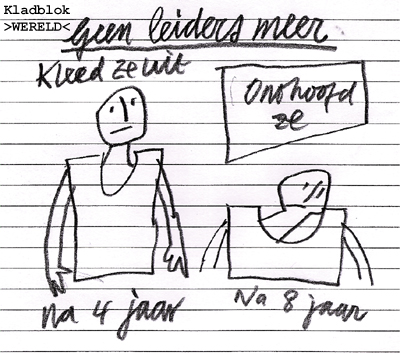 Kladblok
>WERELD<
Geen leiders meer
Kleed ze uit
Onthoofd
ze
Na 4 jaar
Na 8 jaar